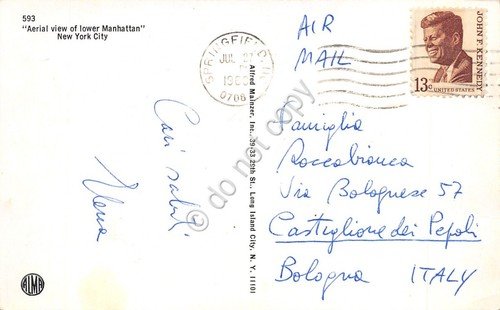 593
"Aerial view of lower Manhattan"
New York City
AIR
MAIL
SPRINGFIELD, N.J.
JUL
0708
JOHN F. KENNEDY
13c
UNITED STATES
Cari saluti
Elena
Alfred Mainzer, Inc., 39-33 29th St., Long Island City, N. Y. 11101
Famiglia
Roccabianca
Via Bolognese 57
Castiglione dei Pepoli
Bologna ITALY
do not copy
ALMA